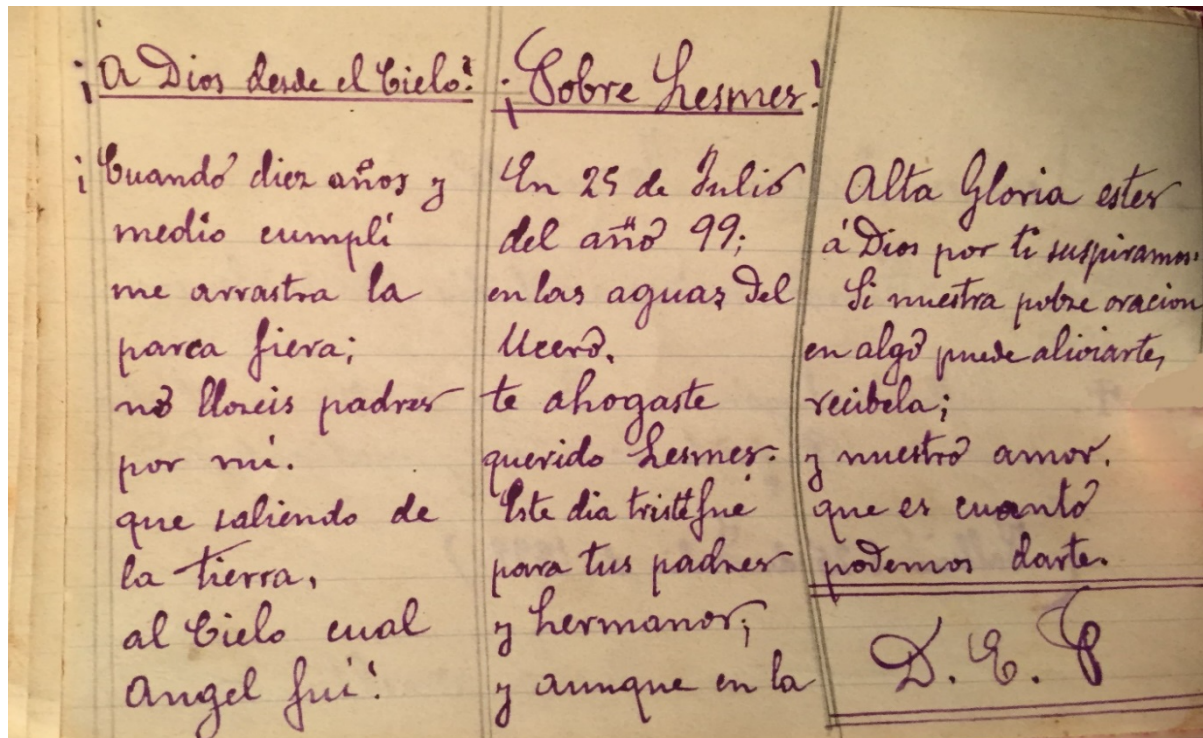 ¡A Dios desde el Cielo!
¡Cuando diez años y
medio cumplí
me arrastra la
parca fiera;
nó lloreis padres
por mí.
que saliendo de
la tierra,
al Cielo cual
Angel fuí!
¡Pobre Lesmes!
En 25 de Julio
del año 99;
en las aguas del
Ucero,
te ahogaste
querido Lesmes.
Este dia triste fué
para tus padres
y hermanos;
y aunque en la
Alta Gloria estes
á Dios por ti suspiramos.
Si nuestra pobre oracion
en algo puede aliviarte,
recibela;
y nuestro amor.
que es cuanto
podemos darte.
D. E. P